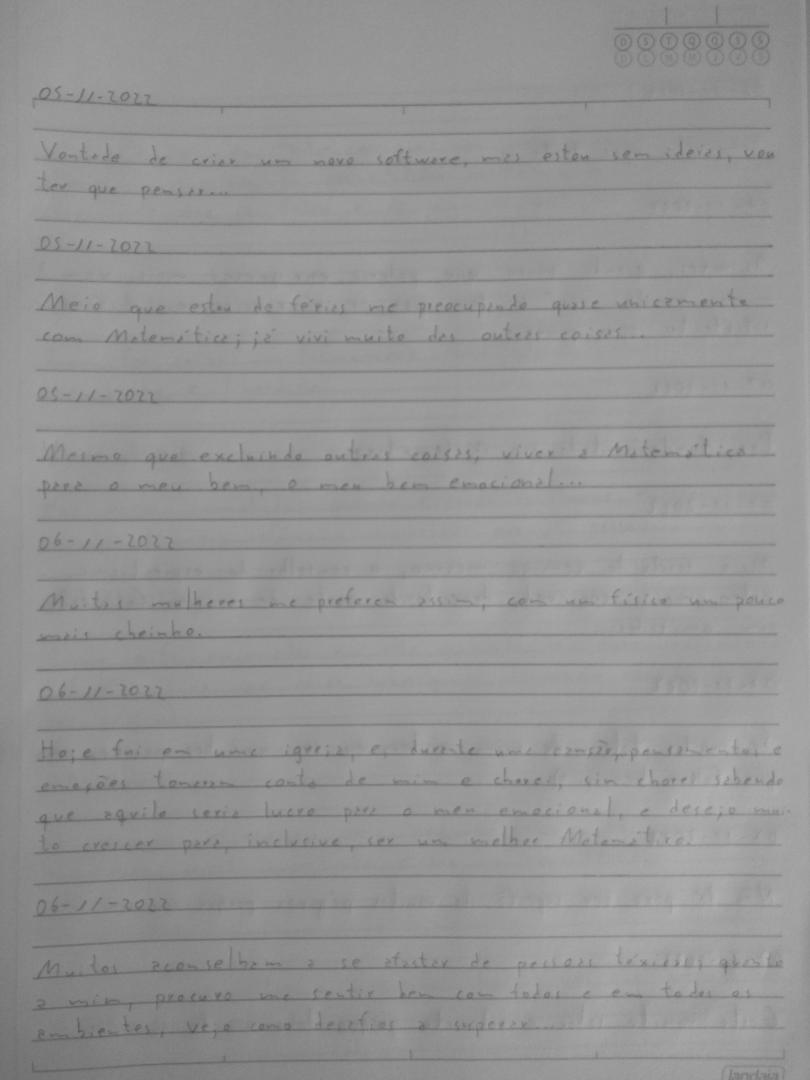 D S T Q Q S S
D L M M J V S
05-11-2022
Vontade de criar um novo software, mas estou sem ideias, vou
ter que pensar...
05-11-2022
Meio que estou de férias me preocupando quase unicamente
com Matemática; já vivi muito das outras coisas...
05-11-2022
Mesmo que excluindo outras coisas, viver a Matemática
para o meu bem, o meu bem emocional...
06-11-2022
Muitas mulheres me preferem assim, com um físico um pouco
mais cheinho.
06-11-2022
Hoje fui em uma igreja, e, durante uma canção, pensamentos e
emoções tomaram conta de mim e chorei, sim chorei sabendo
que aquilo seria lucro para o meu emocional, e desejo mui-
to crescer para, inclusive, ser um melhor Matemático.
06-11-2022
Muitos aconselham a se afastar de pessoas tóxicas, quanto
a mim, procuro me sentir bem com todos e em todos os
ambientes, vejo como desafios a superar...
jandaia